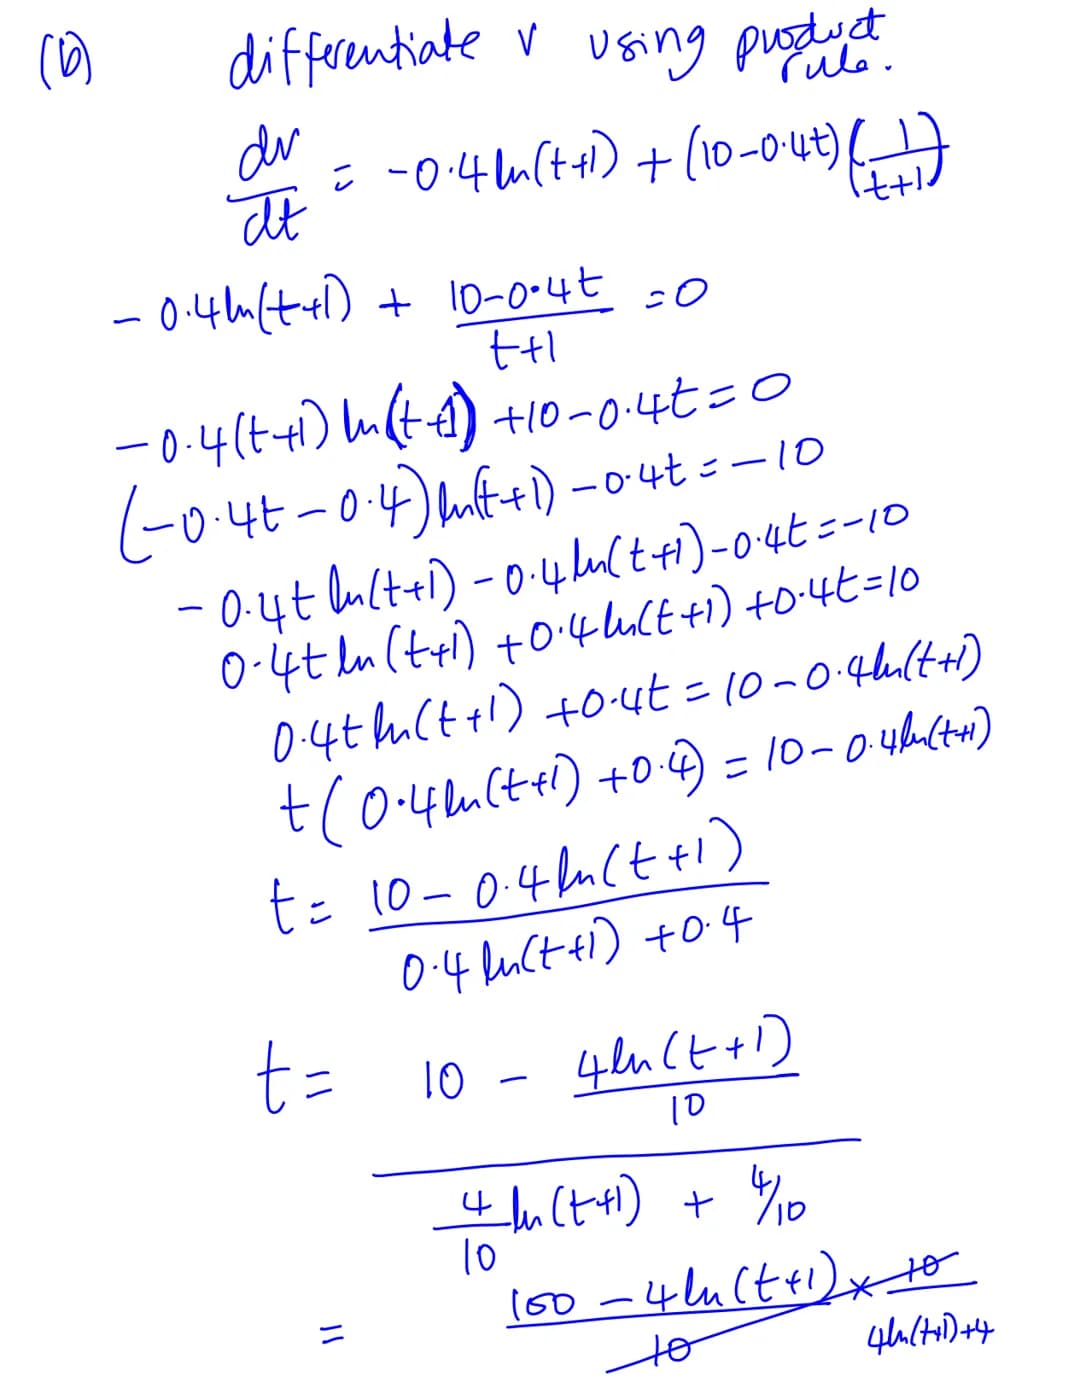 (b) differentiate v using product rule.
dv/dt = -0.4ln(t+1) + (10-0.4t)(1/(t+1))
-0.4ln(t+1) + (10-0.4t)/(t+1) = 0
-0.4(t+1)ln(t+1) +10-0.4t=0
(-0.4t-0.4)ln(t+1) -0.4t = -10
-0.4t ln(t+1) -0.4ln(t+1)-0.4t=-10
0.4t ln(t+1) +0.4ln(t+1) +0.4t=10
0.4t ln(t+1) +0.4t = 10-0.4ln(t+1)
t(0.4ln(t+1) +0.4) = 10-0.4ln(t+1)
t = (10-0.4ln(t+1))/(0.4ln(t+1) +0.4)
t = (10 - 4ln(t+1)/10)/(4/10 ln(t+1) + 4/10)
= (100-4ln(t+1))/10 × 10/(4ln(t+1)+4)